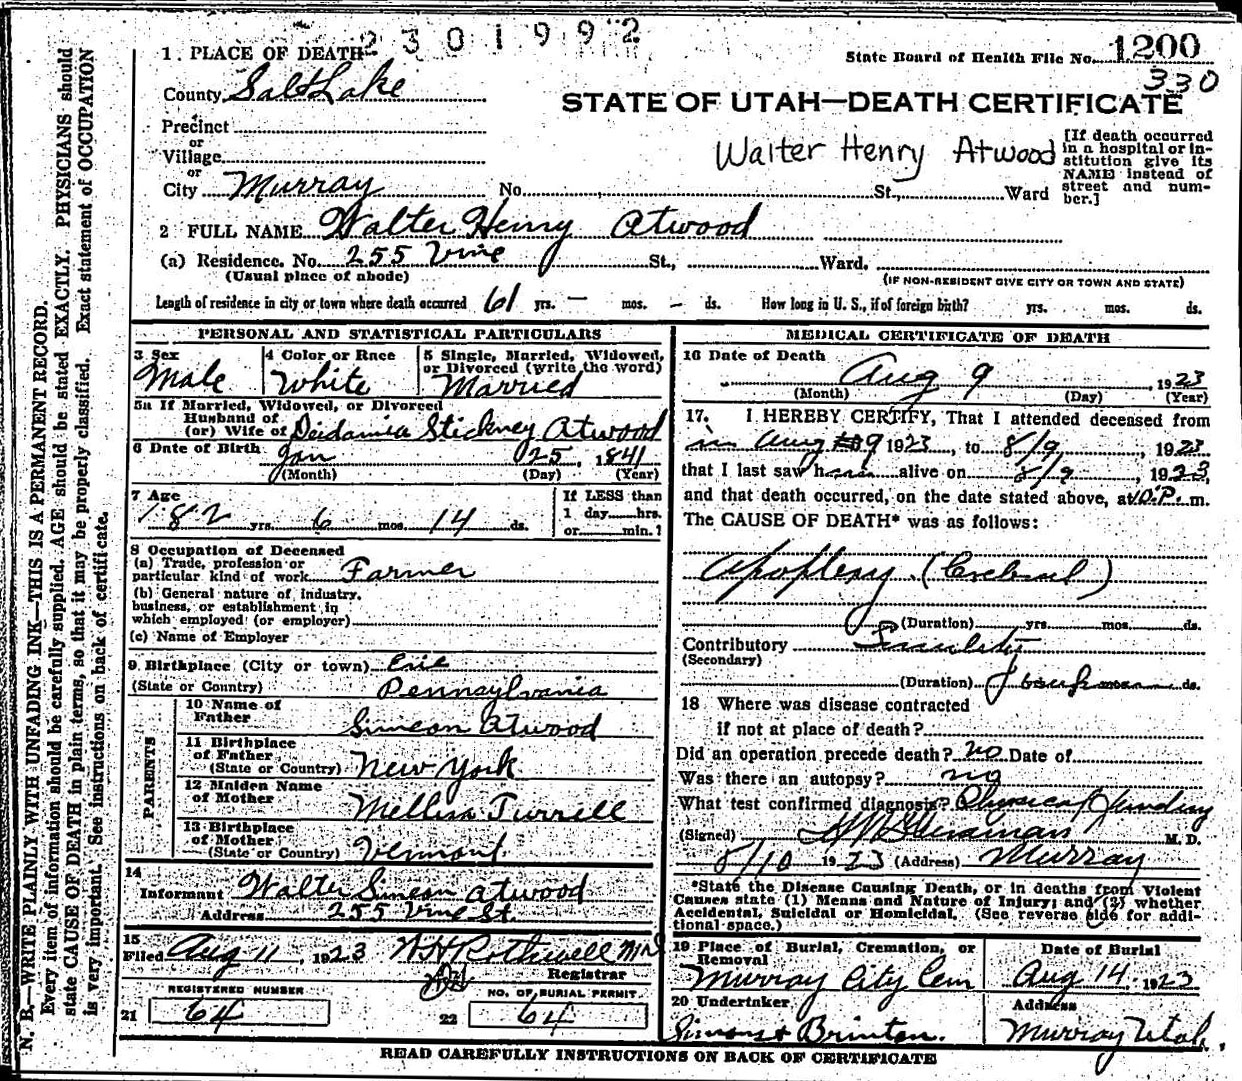 2301992
1. PLACE OF DEATH
State Board of Health File No. 1200
330
County Salt Lake
STATE OF UTAH—DEATH CERTIFICATE
Precinct
or
Village
Walter Henry Atwood
[If death occurred in a hospital or institution give its NAME instead of street and number.]
or
City Murray No. St., Ward
2 FULL NAME Walter Henry Atwood
(a) Residence. No. 255 Vine St., Ward.
(Usual place of abode) (IF NON-RESIDENT GIVE CITY OR TOWN AND STATE)
Length of residence in city or town where death occurred 61 yrs. — mos. — ds. How long in U. S., if of foreign birth? yrs. mos. ds.
PERSONAL AND STATISTICAL PARTICULARS
3 Sex
Male
4 Color or Race
White
5 Single, Married, Widowed, or Divorced (write the word)
Married
5a If Married, Widowed, or Divorced
Husband of
(or) Wife of Deidamia Stickney Atwood
6 Date of Birth Jan 25, 1841
(Month) (Day) (Year)
7 Age
82 yrs. 6 mos. 14 ds.
If LESS than
1 day hrs.
or min.?
8 Occupation of Deceased
(a) Trade, profession or
particular kind of work Farmer
(b) General nature of industry,
business, or establishment in
which employed (or employer)
(c) Name of Employer
9 Birthplace (City or town) Erie
(State or Country) Pennsylvania
PARENTS
10 Name of
Father Simeon Atwood
11 Birthplace
of Father
(State or Country) New York
12 Maiden Name
of Mother Mellisa Turrell
13 Birthplace
of Mother
(State or Country) Vermont
14
Informant Walter Simeon Atwood
Address 255 Vine St
15
Filed Aug 11, 1923 W H Rothwell MD
Registrar
REGISTERED NUMBER
21 64
NO. OF BURIAL PERMIT
22 64
MEDICAL CERTIFICATE OF DEATH
16 Date of Death
Aug 9, 1923
(Month) (Day) (Year)
17. I HEREBY CERTIFY, That I attended deceased from
in Aug 9 1923, to 8/9, 1923
that I last saw him alive on 8/9, 1923,
and that death occurred, on the date stated above, at 10 P. m.
The CAUSE OF DEATH* was as follows:
Apoplexy (Cerebral)
(Duration) yrs. mos. ds.
Contributory
(Secondary)
(Duration) mos. ds.
18 Where was disease contracted
if not at place of death?
Did an operation precede death? no Date of
Was there an autopsy? no
What test confirmed diagnosis? Physical
(Signed) M. D.
8/10 1923 (Address) Murray
*State the Disease Causing Death, or in deaths from Violent
Causes state (1) Means and Nature of Injury; and (2) whether
Accidental, Suicidal or Homicidal. (See reverse side for addi-
tional space.)
19 Place of Burial, Cremation, or
Removal
Murray City Cem
Date of Burial
Aug 14, 1923
20 Undertaker
Simons & Brinton.
Address
Murray Utah.
READ CAREFULLY INSTRUCTIONS ON BACK OF CERTIFICATE
N. B.—WRITE PLAINLY WITH UNFADING INK—THIS IS A PERMANENT RECORD.
Every item of information should be carefully supplied. AGE should be stated EXACTLY. PHYSICIANS should
state CAUSE OF DEATH in plain terms, so that it may be properly classified. Exact statement of OCCUPATION
is very important. See instructions on back of certificate.